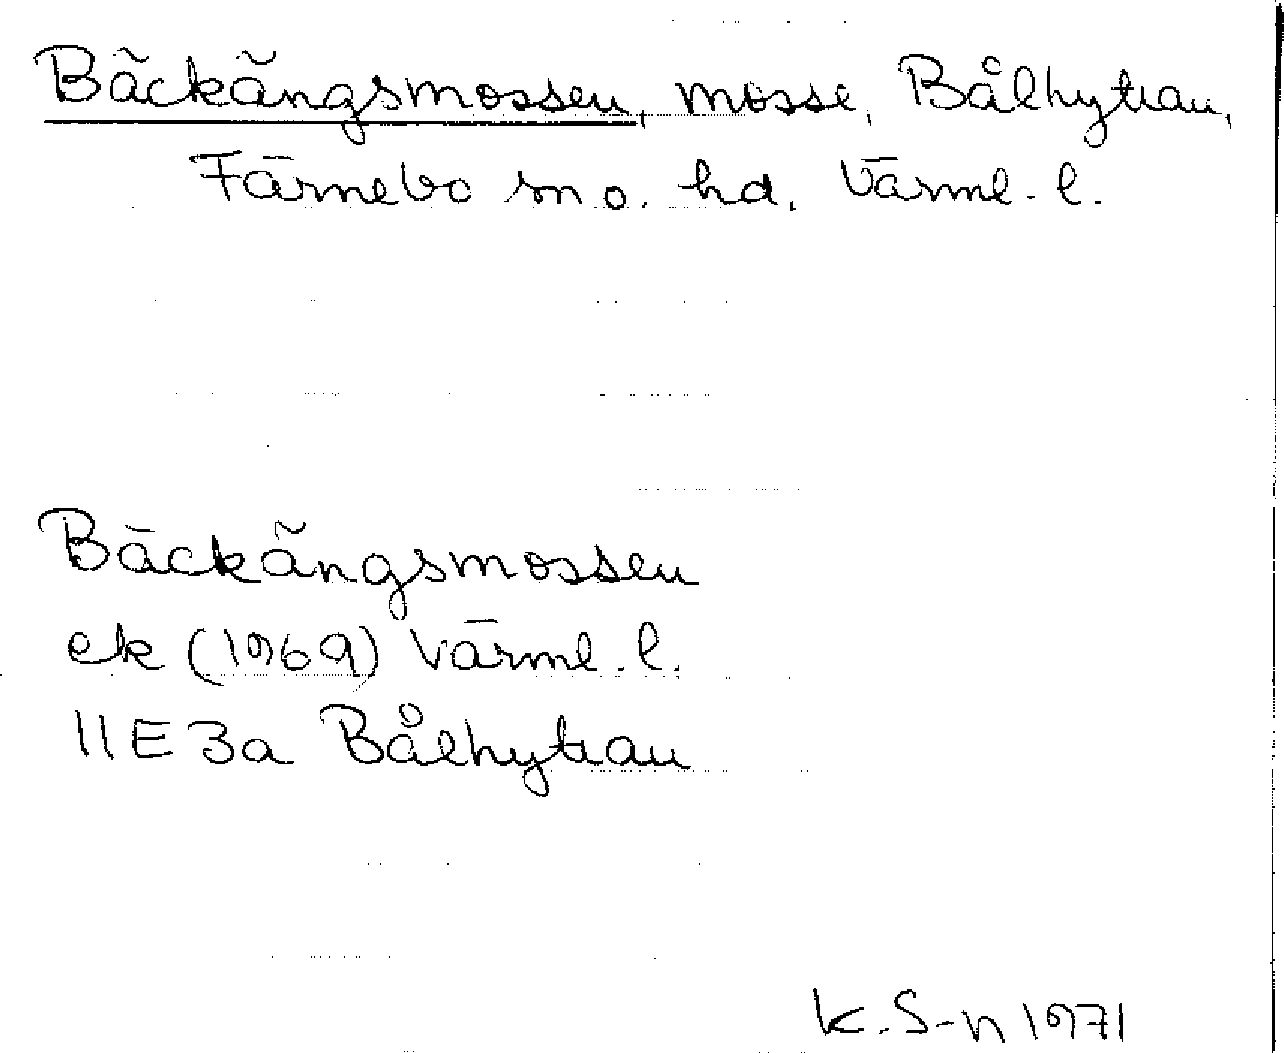 Bäckängsmossen, mosse, Bålhyttan,
Färnebo sn o. hd. Värml. l.
Bäckängsmossen
ek (1969) Värml. l.
11E 3a Bålhyttan
K. S-n 1971